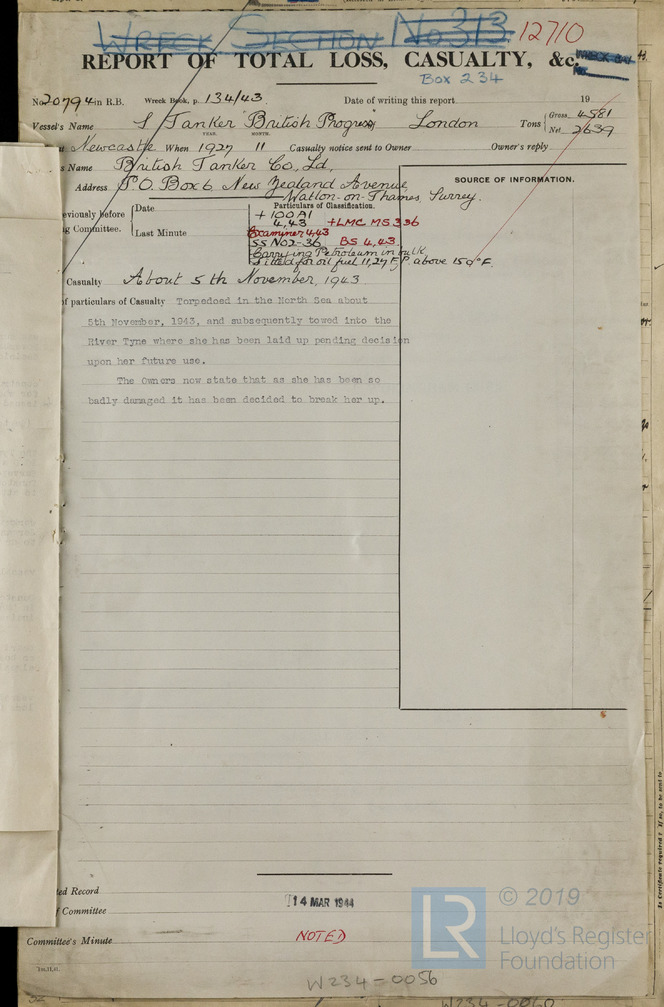 WRECK SECTION No 313. 12710
REPORT OF TOTAL LOSS, CASUALTY, &c.
Box 234
No. 20794 in R.B. Wreck Book, p. 134/43 Date of writing this report 19
Vessel's Name S Tanker British Progress London Tons Gross 4581
Net 2639
YEAR. MONTH.
Newcastle When 1927 11 Casualty notice sent to Owner Owner's reply
s Name British Tanker Co, Ld,
Address P.O. Box 6 New Zealand Avenue,
Walton-on-Thames, Surrey.
SOURCE OF INFORMATION.
eviously before
g Committee.
Date
Last Minute
Particulars of Classification.
+ 100 A1
4,43 +LMC MS 3 36
Examiner 4,43
SS No 2-36 BS 4,43
Carrying Petroleum in bulk
Fitted for oil fuel 11,27 F.P. above 150°F.
Casualty About 5th November, 1943
f particulars of Casualty Torpedoed in the North Sea about
5th November, 1943, and subsequently towed into the
River Tyne where she has been laid up pending decision
upon her future use.
The Owners now state that as she has been so
badly damaged it has been decided to break her up.
ted Record
f Committee
14 MAR 1944
Committee's Minute NOTED
© 2019
LR
Lloyd's Register
Foundation
W234-0056
W234-0060